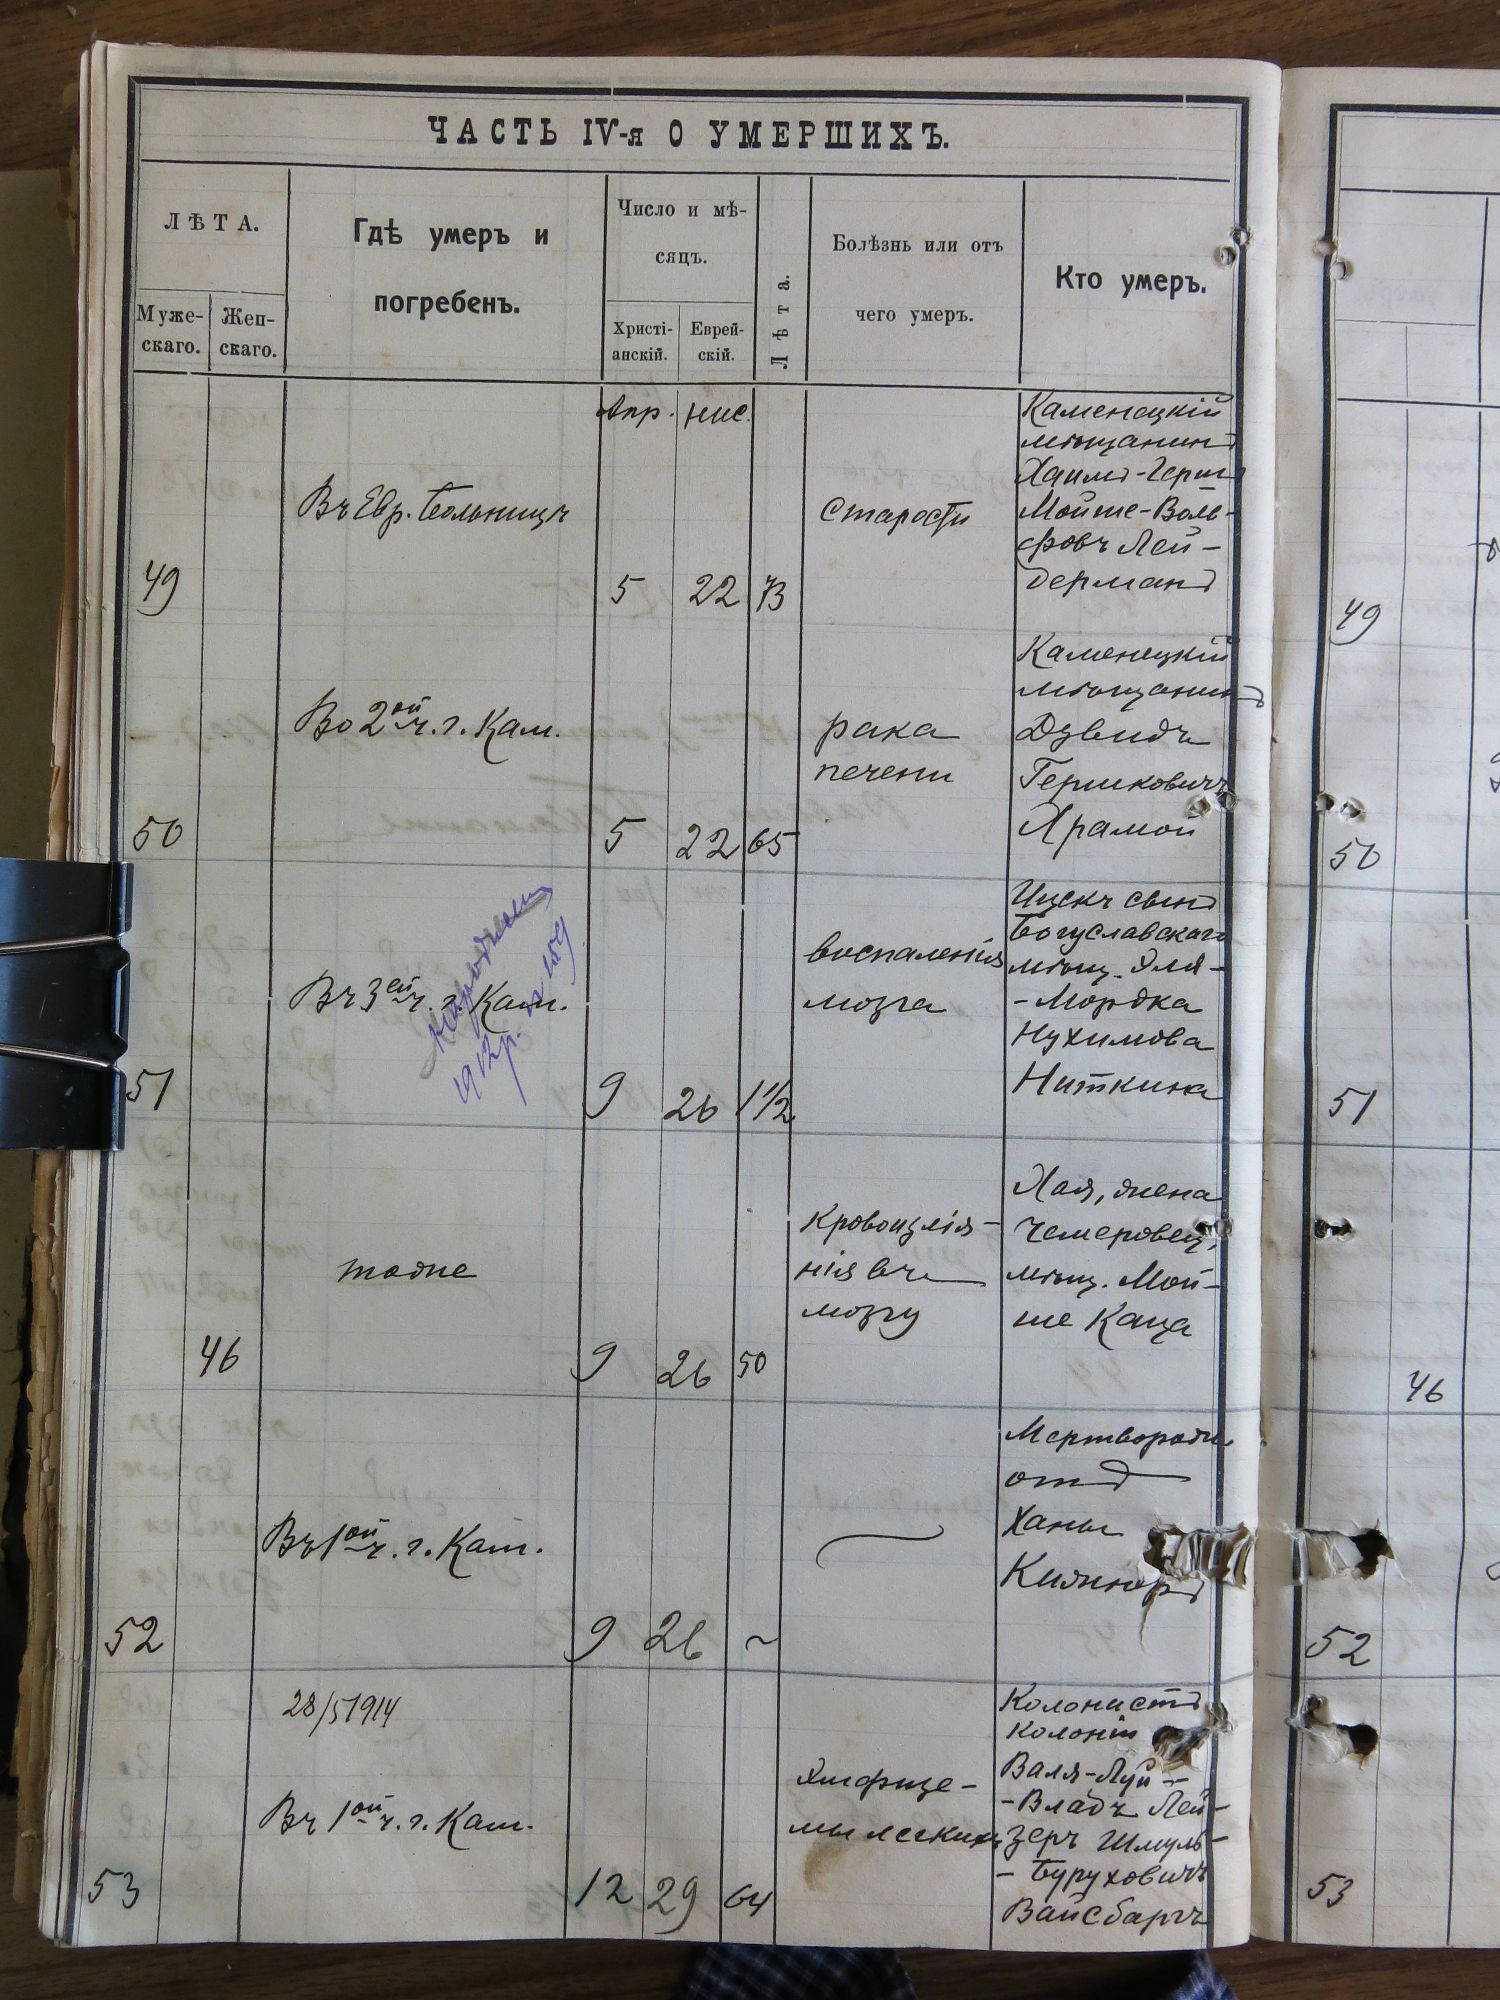 ЧАСТЬ IV-я О УМЕРШИХЪ.
ЛѢТА.
Муже-
скаго.
Жен-
скаго.
Гдѣ умеръ и
погребенъ.
Число и мѣ-
сяцъ.
Христі-
анскій.
Еврей-
скій.
Лѣта.
Болѣзнь или отъ
чего умеръ.
Кто умеръ.
Апр. нис.
49
Въ Евр. больницѣ
5 22 73
старости
Каменецкій
мѣщанинъ
Хаимъ-Герш
Мойше-Воль-
фовъ Лей-
дерманъ
50
Во 2ой ч. г. Кам.
5 22 65
рака
печени
Каменецкій
мѣщанинъ
Дувидъ
Гершковичъ
Храмой
51
Въ 3ей ч. г. Кам.
1912 р. № 159
9 26 1 1/2
воспаленія
мозга
Ицекъ сынъ
Богуславскаго
мѣщ. Эля-
-Мордка
Нухимова
Ниткина
46
тоже
9 26 50
Кровоизлія-
нія въ
мозгу
Хая, жена
Чемеровец.
мѣщ. Мой-
ше Каца
52
Въ 1ой ч. г. Кам.
9 26 ~
Мертворожд
отъ
Ханы
53
28/5 1914
Въ 1ой ч. г. Кам.
12 29 64
Эмфизе-
мы легкихъ
Колонистъ
колоніи
Валя-Луй-
-Владъ Лей-
зеръ Шмуль-
-Буруховичъ
Вайсбергъ
49
50
51
46
52
53